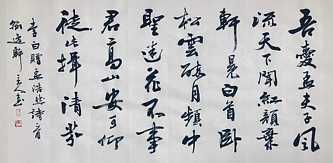 吾愛孟夫子風
流天下聞紅顏棄
軒冕白首臥
松雲醉月頻中
聖迷花不事
君高山安可仰
徒此揖清芬
李白贈孟浩然詩一首
軒主人